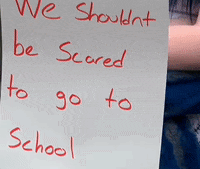 We Shouldnt
be Scared
to go to
School